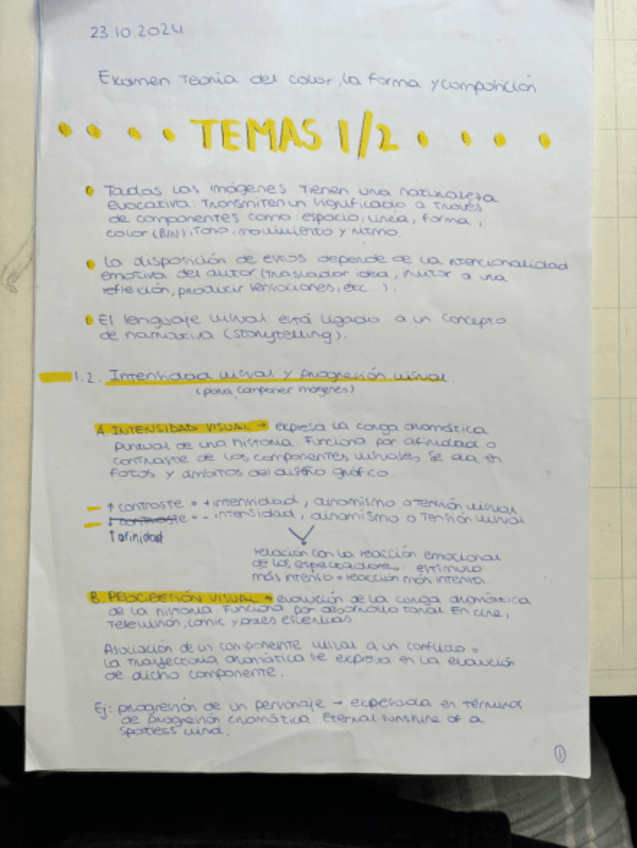 23.10.2024
Examen Teoria del color, la forma y composición
TEMAS 1/2
Todas las imágenes tienen una naturaleza
evocativa: Transmiten un significado a través
de componentes como: espacio, línea, forma,
color (B/N), tono, movimiento y ritmo.
La disposición de estos depende de la intencionalidad
emotiva del autor (trasladar idea, invitar a una
reflexión, producir sensaciones, etc...).
El lenguaje visual está ligado a un concepto
de narrativa (storytelling).
1.2. Intensidad visual y progresión visual
(para componer imágenes)
A. INTENSIDAD VISUAL → expresa la carga dramática
puntual de una historia. Funciona por afinidad o
contraste de los componentes visuales. Se da en
fotos y ámbitos del diseño gráfico.
↑ contraste = + intensidad, dinamismo o tensión visual
↓ contraste = - intensidad, dinamismo o tensión visual
↑ afinidad
relación con la reacción emocional
de los espectadores: estímulo
más intenso = reacción más intensa.
B. PROGRESIÓN VISUAL → evolución de la carga dramática
de la historia. Funciona por desarrollo tonal. En cine,
televisión, comic y artes escénicas.
Asociación de un componente visual a un conflicto =
la trayectoria dramática se expresa en la evolución
de dicho componente.
Ej: progresión de un personaje → expresada en términos
de progresión cromática. Eternal sunshine of a
spotless mind.
1